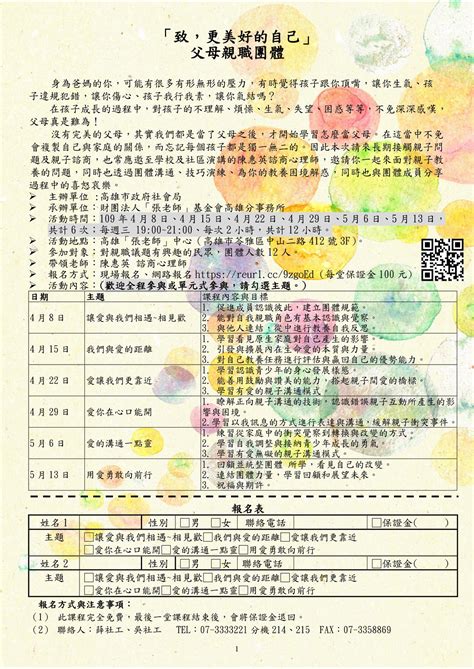 「致，更美好的自己」
父母親職團體
身為爸媽的你，可能有很多有形無形的壓力，有時覺得孩子跟你頂嘴，讓你生氣、孩
子違規犯錯，讓你傷心、孩子我行我素，讓你氣結嗎？
在孩子成長的過程中，對孩子的不理解、煩惱、生氣、失望、困惑等等，不免深深感嘆，
父母真是難為！
沒有完美的父母，其實我們都是當了父母之後，才開始學習怎麼當父母。在這當中不免
會複製自己與家庭的關係，而忘記每個孩子都是獨一無二的。因此本次請來長期接觸親子問
題及親子諮商，也常應邀至學校及社區演講的陳惠英諮商心理師，邀請你一起來面對親子教
養的問題，同時也透過團體溝通、技巧演練、為你的教養困境解惑，同時也與團體成員分享
過程中的喜怒哀樂。
➢ 主辦單位：高雄市政府社會局
➢ 承辦單位：財團法人「張老師」基金會高雄分事務所
➢ 活動時間：109 年 4 月 8 日、4 月 15 日、4 月 22 日、4 月 29 日、5 月 6 日、5 月 13 日，
共計 6 次；每週三 19:00-21:00、每次 2 小時，共計 12 小時。
➢ 活動地點：高雄「張老師」中心（高雄市苓雅區中山二路 412 號 3F）。
➢ 參加對象：對親職議題有興趣的民眾，團體人數 12 人。
➢ 帶領老師：陳惠英 諮商心理師。
➢ 報名方式：現場報名、網路報名 https://reurl.cc/9zgoEd（每堂保證金 100 元）
➢ 活動內容：（歡迎全程參與或單元式參與，請勾選主題。）
日期 主題 課程內容與目標
4 月 8 日 讓愛與我們相遇~相見歡 1. 促進成員認識彼此，建立團體規範。
2. 能對自我親職角色有基本認識與覺察。
3. 與他人連結，從中進行教養自我反思。
4 月 15 日 我們與愛的距離 1. 學習看見原生家庭對自己產生的影響。
2. 引發與擴展內在生命愛的本質與力量。
3. 對自己教養任務進行評估與贏回自己的優勢能力。
4 月 22 日 愛讓我們更靠近 1. 學習認識青少年的身心發展特徵。
2. 能善用鼓勵與讚美的能力，搭起親子間愛的橋樑。
3. 學習有愛的親子溝通模式
4 月 29 日 愛你在心口能開 1. 瞭解正向親子溝通的技術，認識錯誤親子互動所產生的影
響與困境。
2. 學習以我訊息的方式進行表達與溝通，緩解親子衝突事件。
5 月 6 日 愛的溝通一點靈 1. 練習從家庭中的衝突覺察到轉換與改變的方式。
2. 學習自我調整與接納青少年的溝通型態。
3. 學習有愛無礙的親子溝通模式。
5 月 13 日 用愛勇敢向前行 1. 回顧並統整團體 所學，看見自己的改變。
2. 連結團體力量，學習回顧和展望未來。
3. 祝福與期許。
報名表
姓名 1 性別 □男 □女 聯絡電話 □保證金( )
主題 □讓愛與我們相遇~相見歡□我們與愛的距離□愛讓我們更靠近
□愛你在心口能開□愛的溝通一點靈□用愛勇敢向前行
姓名 2 性別 □男 □女 聯絡電話 □保證金( )
主題 □讓愛與我們相遇~相見歡□我們與愛的距離□愛讓我們更靠近
□愛你在心口能開□愛的溝通一點靈□用愛勇敢向前行
報名方式與注意事項：
(1) 此課程完全免費，最後一堂課程結束後，會將保證金退回。
(2) 聯絡人：薛社工、吳社工 TEL：07-3333221 分機 214、215 FAX：07-3358869
1